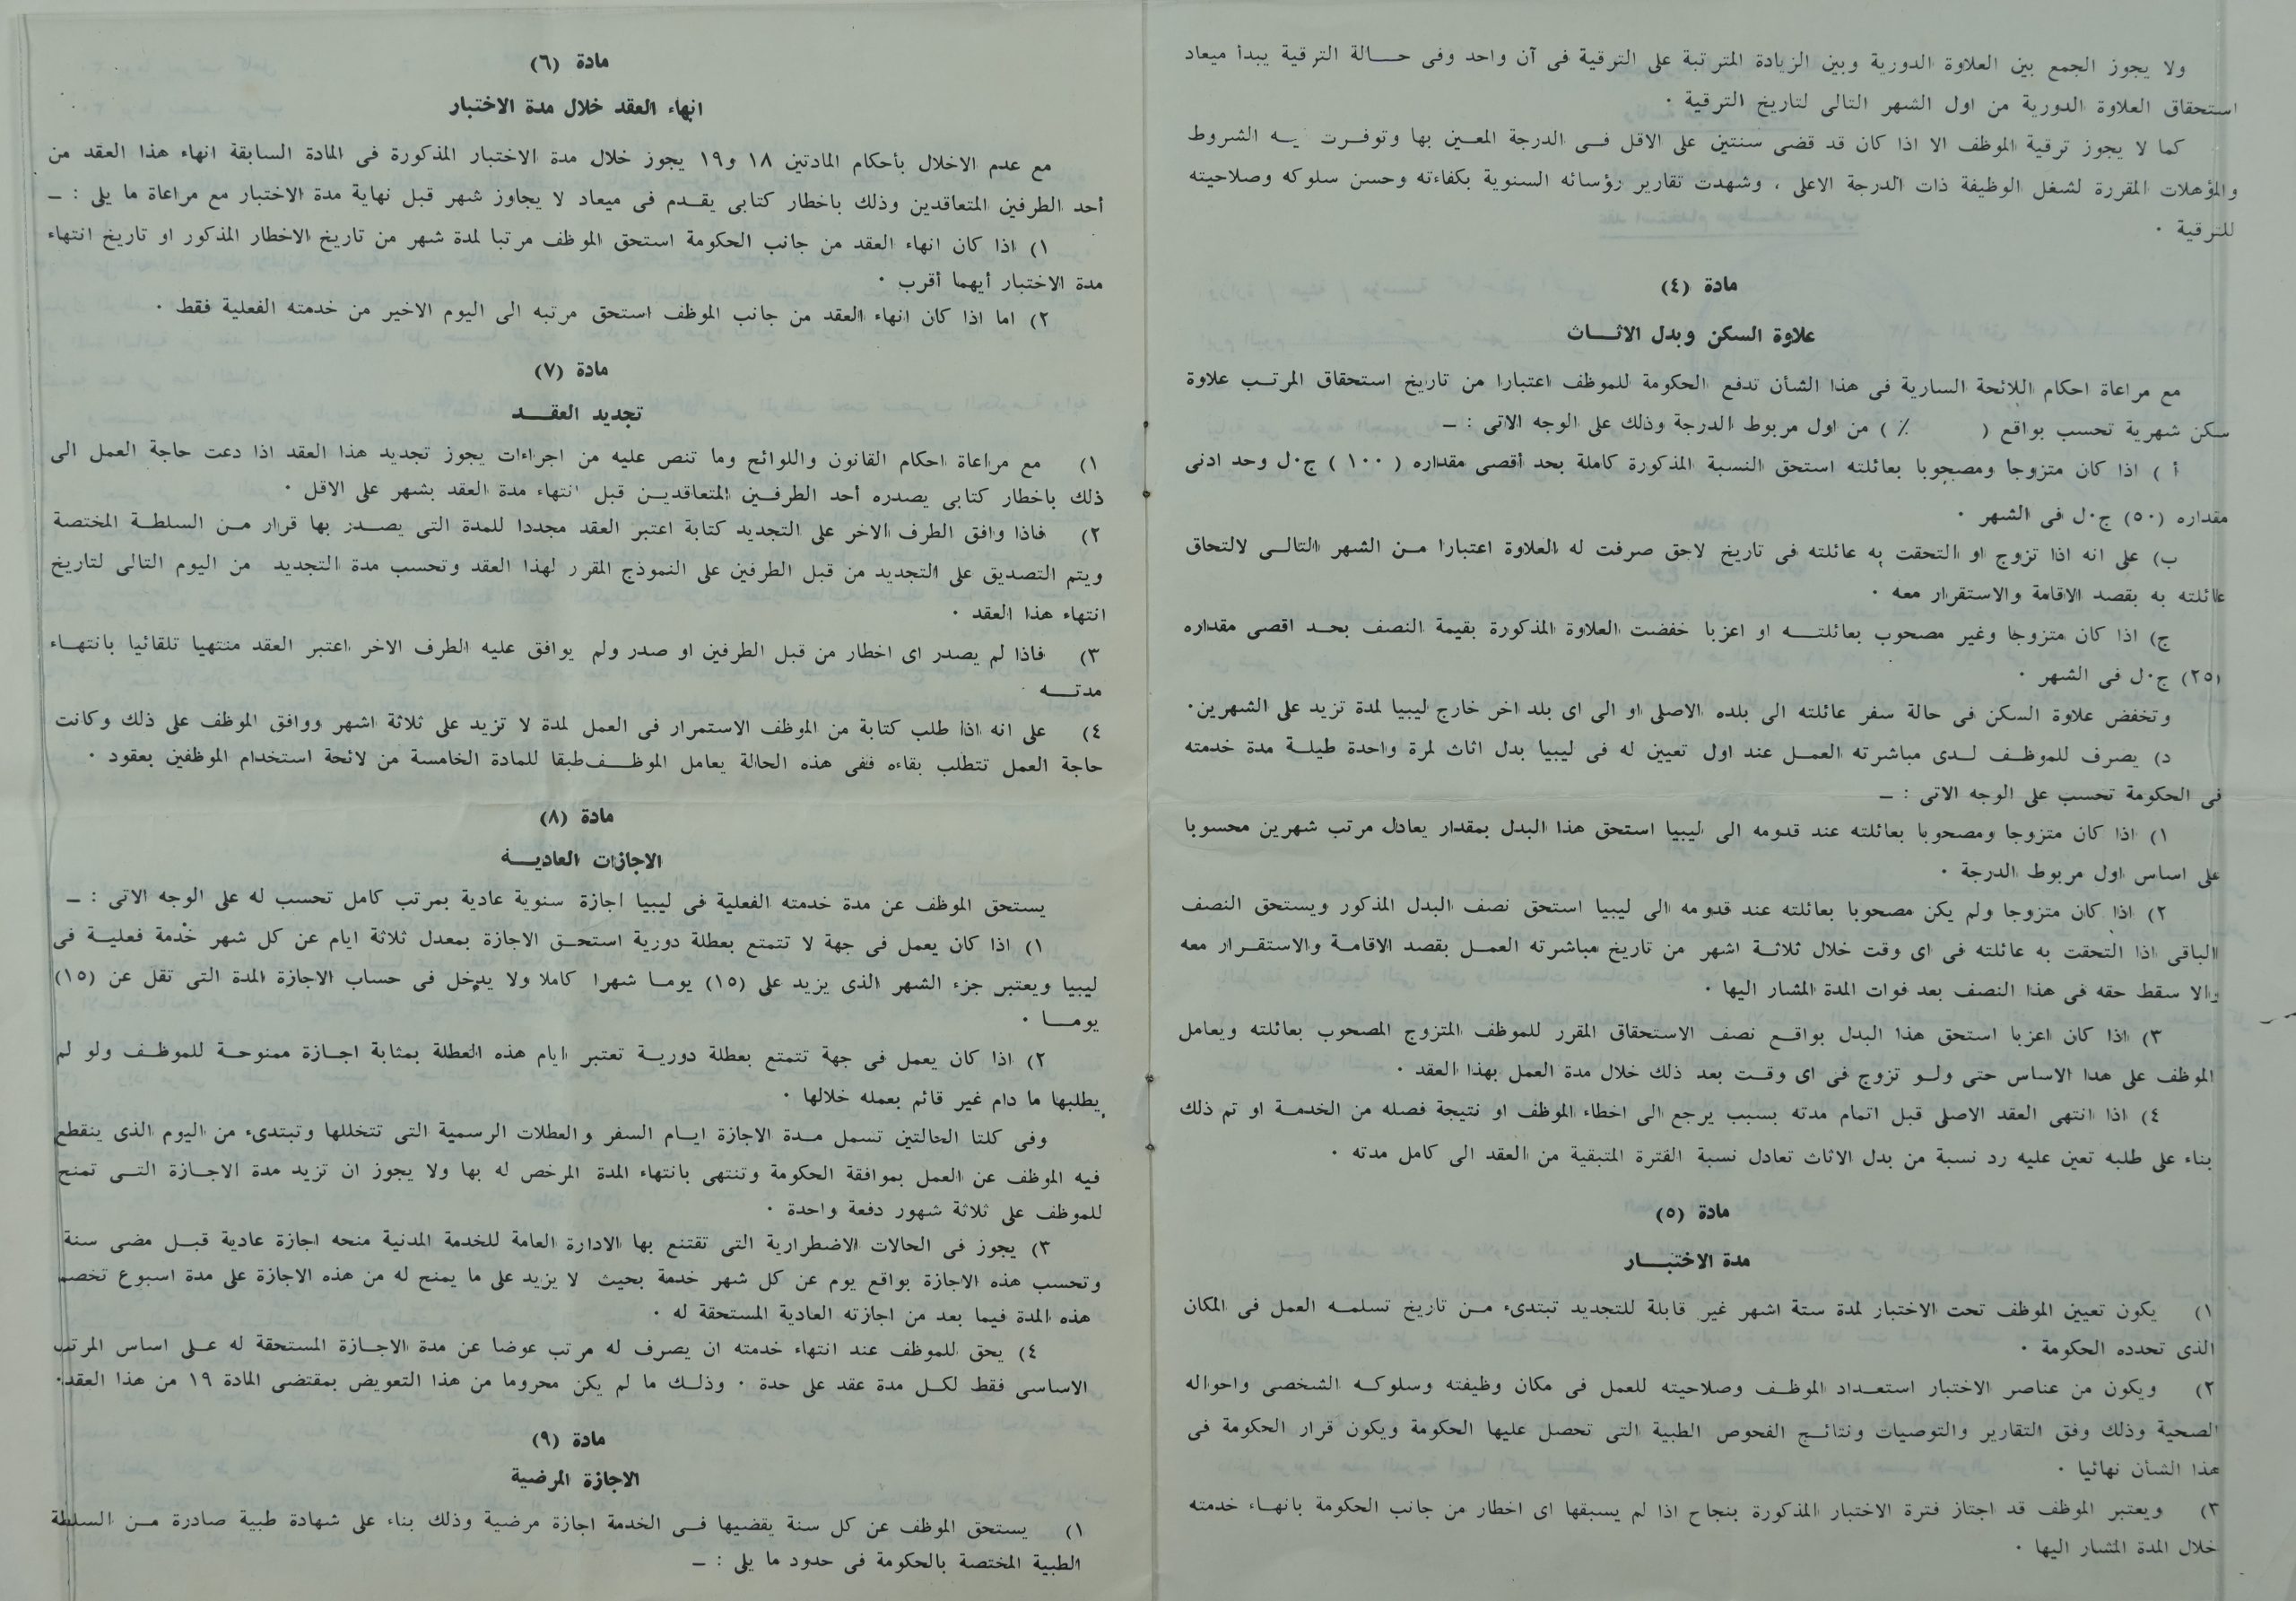 ولا يجوز الجمع بين العلاوة الدورية وبين الزيادة المترتبة على الترقية فى آن واحد وفى حــالة الترقية يبدأ ميعاد
استحقاق العلاوة الدورية من اول الشهر التالى لتاريخ الترقية ·
كما لا يجوز ترقية الموظف الا اذا كان قد قضى سنتين على الاقل فــى الدرجة المعــين بها وتوفــرت يــه الشروط
والمؤهلات المقررة لشغل الوظيفة ذات الدرجة الاعلى ، وشهدت تقارير رؤسائه السنوية بكفاءته وحسن سلوكه وصلاحيته
للترقية ·
مادة (٤)
علاوة السكن وبدل الاثــاث
مع مراعاة احكام اللائحة السارية فى هذا الشأن تدفع الحكومة للموظف اعتبارا من تاريخ استحقاق المرتــب علاوة
سكن شهرية تحسب بواقع ( ٪ ) من اول مربوط الدرجة وذلك على الوجه الاتى : ــ
أ ) اذا كان متزوجا ومصحوبا بعائلته استحق النسبة المذكورة كاملة بحد أقصى مقداره ( ١٠٠ ) ج·ل وحد ادنى
مقداره (٥٠) ج·ل فى الشهر ·
ب) على انه اذا تزوج او التحقت به عائلته فى تاريخ لاحق صرفت له العلاوة اعتبارا مــن الشهر التالــى لالتحاق
عائلته به بقصد الاقامة والاستقرار معه ·
ج) اذا كان متزوجا وغير مصحوب بعائلتــه او اعزبا خفضت العلاوة المذكورة بقيمة النصف بحــد اقصى مقداره
(٢٥) ج·ل فى الشهر ·
وتخفض علاوة السكن فى حالة سفر عائلته الى بلده الاصلى او الى اى بلد اخر خارج ليبيا لمدة تزيد على الشهرين·
د) يصرف للموظــف لــدى مباشرته العمــل عند اول تعيين له فى ليبيا بدل اثاث لمرة واحدة طيلــة مدة خدمته
فى الحكومة تحسب على الوجه الاتى : ــ
١) اذا كان متزوجا ومصحوبا بعائلته عند قدومه الى ليبيا استحق هذا البدل بمقدار يعادل مرتب شهرين محسوبا
على اساس اول مربوط الدرجة ·
٢) اذا كان متزوجا ولم يكن مصحوبا بعائلته عند قدومه الى ليبيا استحق نصف البدل المذكور ويستحق النصف
الباقى اذا التحقت به عائلته فى اى وقت خلال ثلاثــة اشهر من تاريخ مباشرته العمــل بقصد الاقامــة والاستقــرار معه
والا سقط حقه فى هذا النصف بعد فوات المدة المشار اليها ·
٣) اذا كان اعزبا استحق هذا البدل بواقــع نصف الاستحقاق المقرر للموظف المتزوج المصحوب بعائلته ويعامل
الموظف على هذا الاساس حتى ولــو تزوج فى اى وقــت بعد ذلك خلال مدة العمل بهذا العقد ·
٤) اذا انتهى العقد الاصلى قبل اتمام مدته بسبب يرجع الى اخطاء الموظف او نتيجة فصله من الخدمــة او تم ذلك
بناء على طلبه تعين عليه رد نسبة من بدل الاثاث تعادل نسبة الفترة المتبقية من العقد الى كامل مدته ·
مادة (٥)
مدة الاختبــار
١) يكون تعيين الموظف تحت الاختبار لمدة ستة اشهر غير قابلة للتجديد تبتدىء مــن تاريخ تسلمــه العمل فى المكان
الذى تحدده الحكومة ·
٢) ويكون من عناصر الاختبار استعــداد الموظــف وصلاحيته للعمل فى مكان وظيفته وسلوكــه الشخصى واحواله
الصحية وذلك وفق التقارير والتوصيات ونتائــج الفحوص الطبية التى تحصل عليها الحكومة ويكون قرار الحكومة فى
هذا الشأن نهائيا ·
٣) ويعتبر الموظف قد اجتاز فترة الاختبار المذكورة بنجاح اذا لم يسبقها اى اخطار من جانب الحكومة بانهــاء خدمته
خلال المدة المشار اليها ·
مادة (٦)
انهاء العقد خلال مدة الاختبار
مع عدم الاخلال بأحكام المادتين ١٨ و١٩ يجوز خلال مدة الاختبار المذكورة فى المادة السابقة انهاء هذا العقد من
أحد الطرفين المتعاقدين وذلك باخطار كتابى يقــدم فى ميعاد لا يجاوز شهر قبل نهاية مدة الاختبار مع مراعاة ما يلى : ــ
١) اذا كان انهاء العقد من جانب الحكومة استحق الموظف مرتبا لمدة شهر من تاريخ الاخطار المذكور او تاريخ انتهاء
مدة الاختبار أيهما أقرب ·
٢) اما اذا كان انهاء العقد من جانب الموظف استحق مرتبه الى اليوم الاخير من خدمته الفعلية فقط ·
مادة (٧)
تجديد العقــد
١) مع مراعاة احكام القانون واللوائح وما تنص عليه من اجراءات يجوز تجديد هذا العقد اذا دعت حاجة العمل الى
ذلك باخطار كتابى يصدره أحد الطرفــين المتعاقديــن قبل انتهاء مدة العقد بشهر على الاقل ·
٢) فاذا وافق الطرف الاخر على التجديد كتابة اعتبر العقد مجددا للمدة التى يصــدر بها قرار مــن السلطــة المختصة
ويتم التصديق على التجديد من قبل الطرفين على النموذج المقرر لهذا العقد وتحسب مدة التجديد من اليوم التالى لتاريخ
انتهاء هذا العقد ·
٣) فاذا لم يصدر اى اخطار من قبل الطرفين او صدر ولم يوافق عليه الطرف الاخر اعتبر العقد منتهيا تلقائيا بانتهــاء
مدتــه ·
٤) على انه اذا طلب كتابة من الموظف الاستمرار فى العمل لمدة لا تزيد على ثلاثة اشهر ووافق الموظف على ذلك وكانت
حاجة العمل تتطلب بقاءه ففى هذه الحالة يعامل الموظــف طبقا للمادة الخامسة من لائحة استخدام الموظفين بعقود ·
مادة (٨)
الاجازات العاديــة
يستحق الموظف عن مدة خدمته الفعلية فى ليبيا اجازة سنوية عادية بمرتب كامل تحسب له على الوجه الاتى : ــ
١) اذا كان يعمل فى جهة لا تتمتع بعطلة دورية استحــق الاجازة بمعدل ثلاثة ايام عن كل شهر خدمة فعليــة فى
ليبيا ويعتبر جزء الشهر الذى يزيد على (١٥) يومــا شهرا كاملا ولا يدخل فى حساب الاجازة المدة التى تقل عن (١٥)
يومــا ·
٢) اذا كان يعمل فى جهة تتمتع بعطلة دوريــة تعتبر ايام هذه العطلة بمثابة اجــازة ممنوحــة للموظــف ولو لم
يطلبها ما دام غير قائم بعمله خلالها ·
وفى كلتا الحالتين تشمل مــدة الاجازة ايــام السفر والعطلات الرسمية التى تتخللها وتبتدىء من اليوم الذى ينقطع
فيه الموظف عن العمل بموافقة الحكومة وتنتهى بانتهاء المدة المرخص له بها ولا يجوز ان تزيد مدة الاجــازة التــى تمنح
للموظف على ثلاثة شهور دفعة واحدة ·
٣) يجوز فى الحالات الاضطرارية التى تقتنع بها الادارة العامة للخدمة المدنية منحه اجازة عادية قبــل مضى سنة
وتحسب هذه الاجازة بواقع يوم عن كل شهر خدمة بحيث لا يزيد على ما يمنح له من هذه الاجازة على مدة اسبوع تخصم
هذه المدة فيما بعد من اجازته العادية المستحقة له ·
٤) يحق للموظف عند انتهاء خدمته ان يصرف له مرتب عوضا عن مدة الاجــازة المستحقة له علــى اساس المرتب
الاساسى فقط لكــل مدة عقد على حدة · وذلــك ما لم يكن محروما من هذا التعويض بمقتضى المادة ١٩ من هذا العقد·
مادة (٩)
الاجازة المرضية
١) يستحق الموظف عن كل سنة يقضيها فــى الخدمة اجازة مرضية وذلك بناء على شهادة طبية صادرة مــن السلطة
الطبية المختصة بالحكومة فى حدود ما يلى : ــ